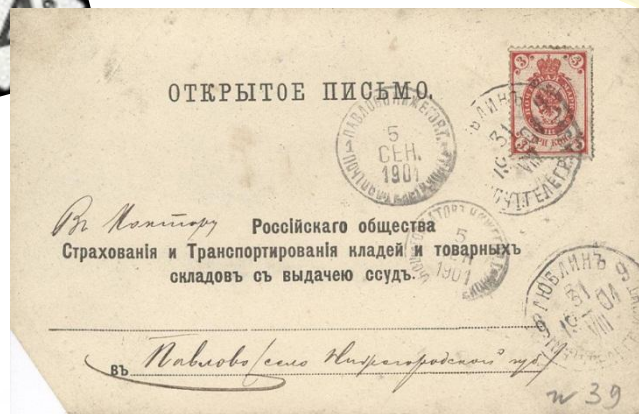 ОТКРЫТОЕ ПИСЬМО.
3 3
ПАВЛОВО НИЖЕГОР.Г.
5
СЕН.
1901
ЛЮБЛИНЪ
31
VIII
ПОЧТ. ТЕЛЕГР.
Въ Контору Россійскаго общества
Страхованія и Транспортированія кладей и товарныхъ
складовъ съ выдачею ссудъ.
5
1901
ЛЮБЛИНЪ
31
19 01
VIII
въ Павлово (село Нижегородской губ)
N 39